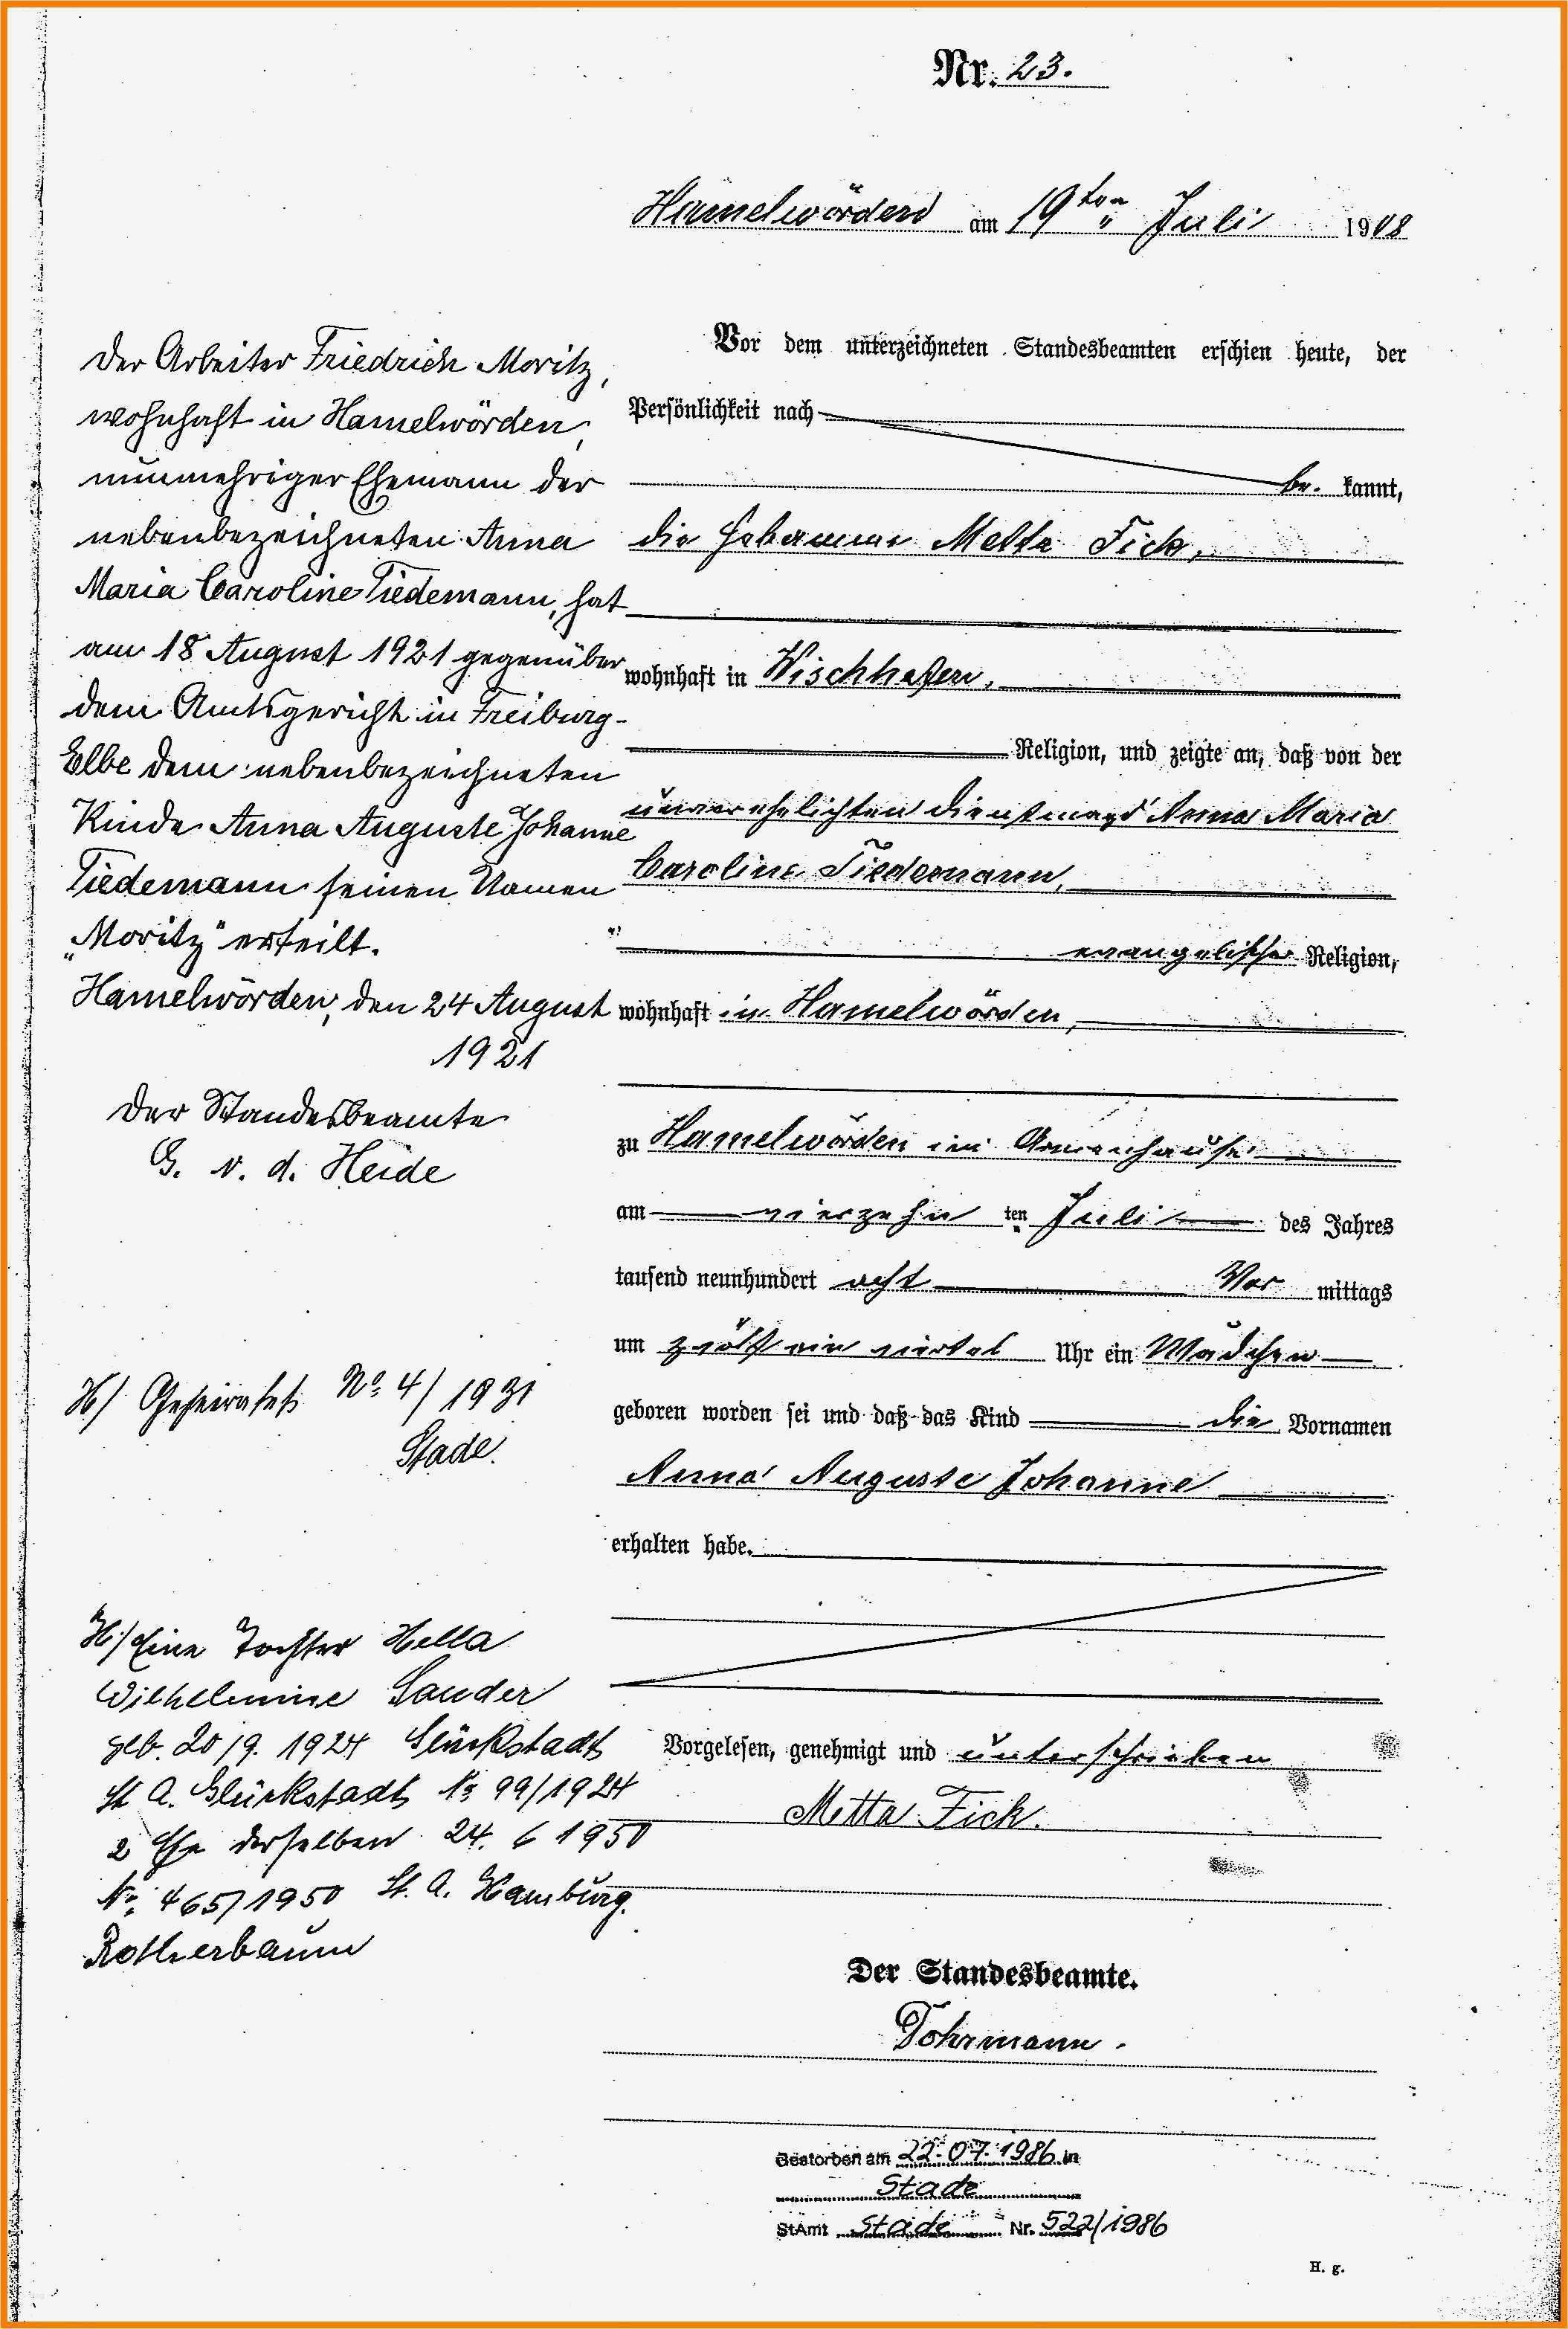 Nr. 23.
Hamelwörden am 19ten Juli 1908
Der Arbeiter Friedrich Moritz,
wohnhaft in Hamelwörden,
nunmehriger Ehemann der
nebenbezeichneten Anna
Maria Caroline Tiedemann, hat
am 18 August 1921 gegenüber
dem Amtsgericht in Freiburg-
Elbe dem nebenbezeichneten
Kinde Anna Auguste Johanne
Tiedemann seinen Namen
„Moritz" erteilt.
Hamelwörden, den 24 August
1921
Der Standesbeamte
G. v. d. Heide
H/ Geheiratet No 4/1931
Stade.
H/ Eine Tochter Hella
Wilhelmine Sander
geb. 20/9. 1924 Glückstadt
St A. Glückstadt No 99/1924
2 Ehe derselben 24. 6 1950
No. 465/1950 St. A. Hamburg.
Rotherbaum
Vor dem unterzeichneten Standesbeamten erschien heute, der
Persönlichkeit nach
be. kannt,
die Hebamme Metta Fick,
wohnhaft in Wischhafen,
Religion, und zeigte an, daß von der
unverehelichten Dienstmagd Anna Maria
Caroline Tiedemann,
evangelischer Religion,
wohnhaft in Hamelwörden,
zu Hamelwörden im Armenhause
am vierzehn ten Juli des Jahres
tausend neunhundert acht Vor mittags
um zwölf ein viertel Uhr ein Mädchen
geboren worden sei und daß das Kind die Vornamen
Anna Auguste Johanne
erhalten habe.
Vorgelesen, genehmigt und unterschrieben
Metta Fick.
Der Standesbeamte.
Tohrmann.
Gestorben am 22.07.1986 in
Stade
StAmt Stade Nr. 522/1986
H. g.